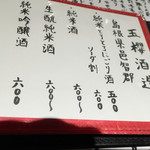 玉櫻酒造
島根県邑智郡
純米とろとろにごり酒 五〇〇
ソーダ割 六〇〇
純米酒 六〇〇〜
生酛純米酒 六〇〇〜
純米吟醸酒 六〇〇